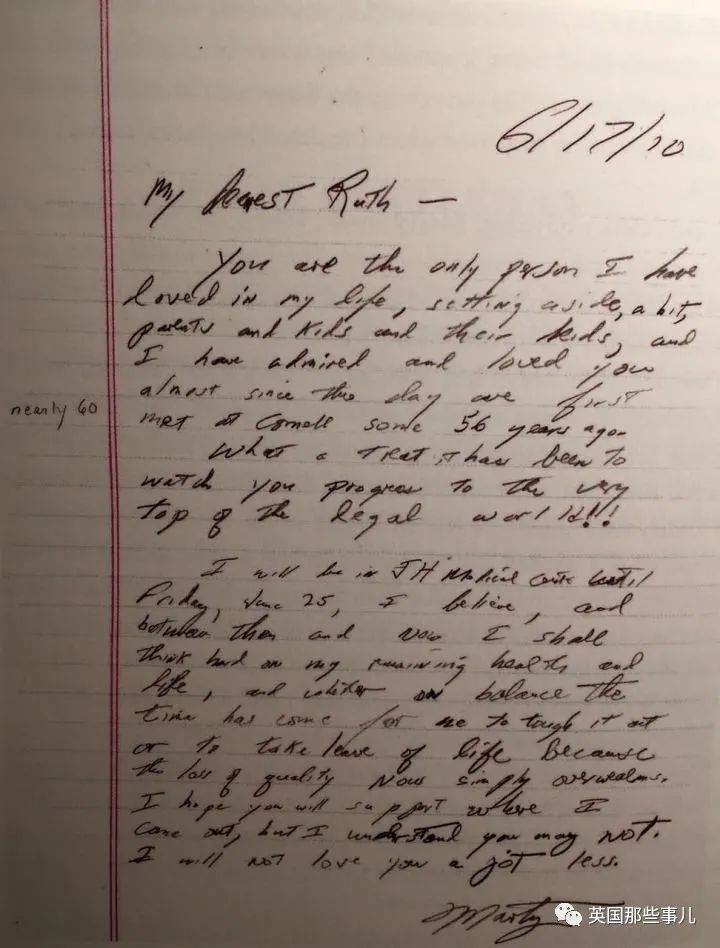 6/17/10
My Dearest Ruth —
You are the only person I have
loved in my life, setting aside, a bit,
parents and kids and their kids, and
I have admired and loved you
almost since the day we first
met at Cornell some 56 years ago.
nearly 60
What a treat it has been to
watch you progress to the very
top of the legal world!!
I will be in JH Medical Center until
Friday, June 25, I believe, and
between then and now I shall
think hard on my remaining health and
life, and whether on balance the
time has come for me to tough it out
or to take leave of life because
the loss of quality now simply overwhelms.
I hope you will support where I
come out, but I understand you may not.
I will not love you a jot less.
Marty
英国那些事儿